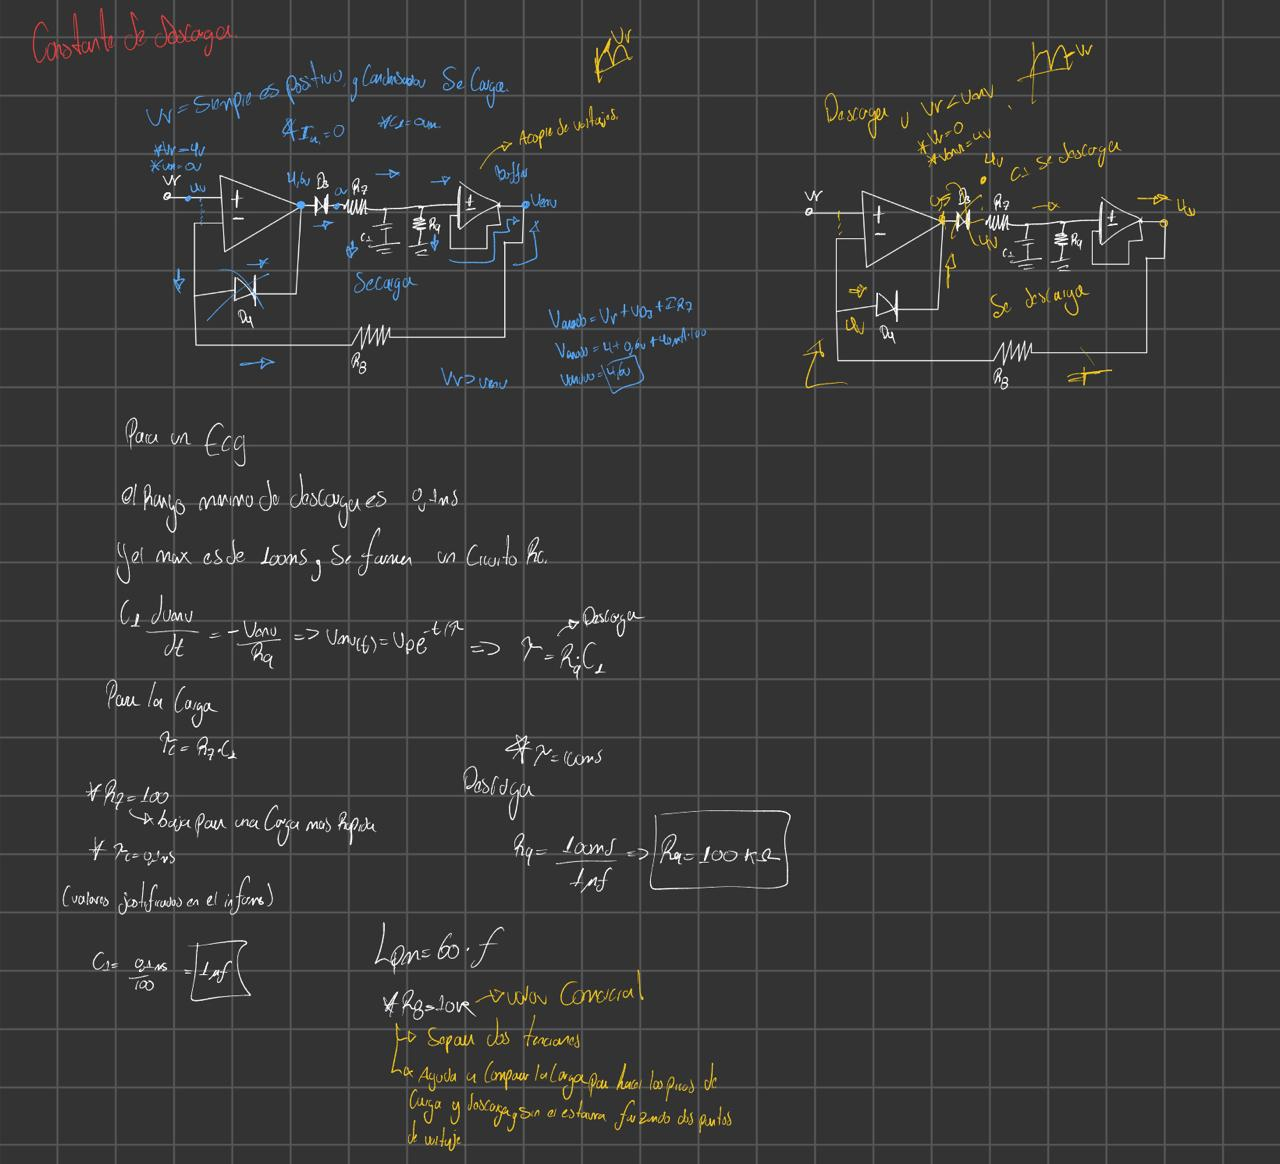 Constante de descarga
Vr = Siempre es positivo, y Condensador Se Carga.
*Vr=4v
*Venv=0v
Vr
4v
4,6v
D3
R7
→ Acople de voltajes.
buffer
Venv
C1
R9
Se carga
D4
R8
Vr > Venv
Vanodo = Vr + VD3 + I R7
Vanodo = 4 + 0,6v + 40mA·100
Vanodo = 4,6v
Vr
Descarga, Vr < Venv,
*Vr=0
*Venv=4v
4v
C1 se descarga
Vr
D3
R7
4v
4v
C1
R9
Se descarga
D4
4v
R8
Para un Ecg
el Rango minimo de descarga es 0,1ms
y el max es de 100ms, Se forman un Circuito Rc.
C1 dvenv/dt = -Venv/R9 => Venv(t) = Vpe^-t/τ => τ = R9C1
→ Descarga
Para la Carga
τc = R7·C1
*R7=100
↳ baja para una Carga mas Rapida
* τc=0,1ms
(valores justificados en el informe)
C1 = 0,1ms/100 = 1µf
* τ=100ms
Descarga
R9 = 100ms/1µf => R9 = 100KΩ
Lpm = 60·f
*R8=10K → valor Comercial
→ Separa dos tensiones
→ Ayuda a Comparar la Carga para hacer los picos de
Carga y descarga, sin el estaria forzando dos puntos
de voltaje